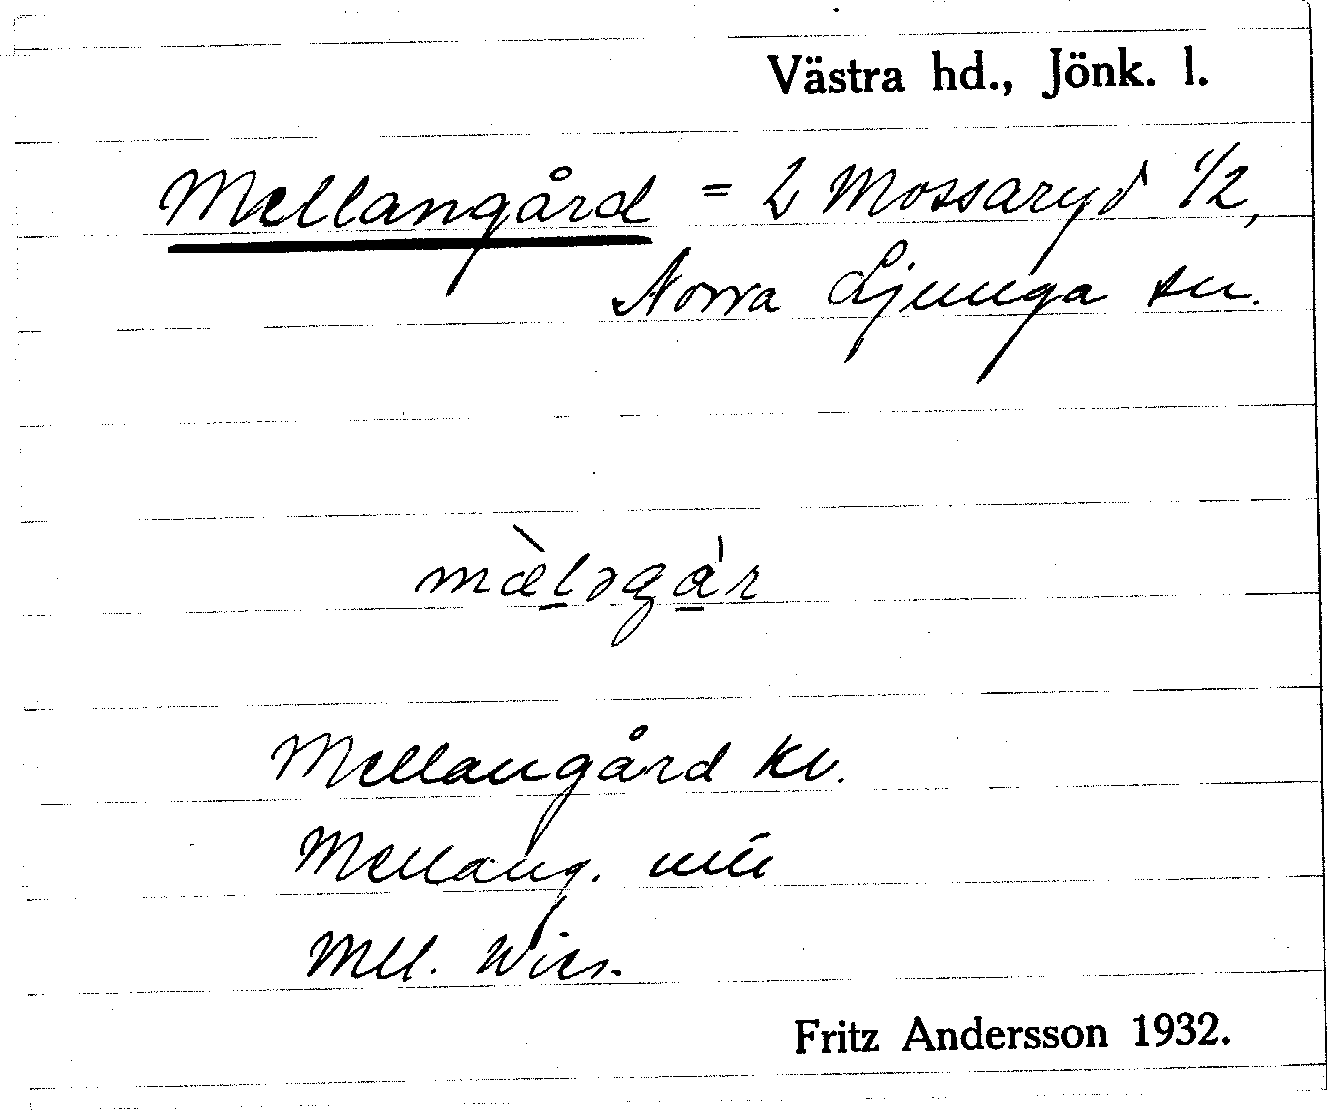 Västra hd., Jönk. l.
Mellangård = L Mossaryd 1/2,
Norra Ljunga sn.
mæ̀ləgár
Mellangård Kv.
Mellang.
Mll. Wies.
Fritz Andersson 1932.